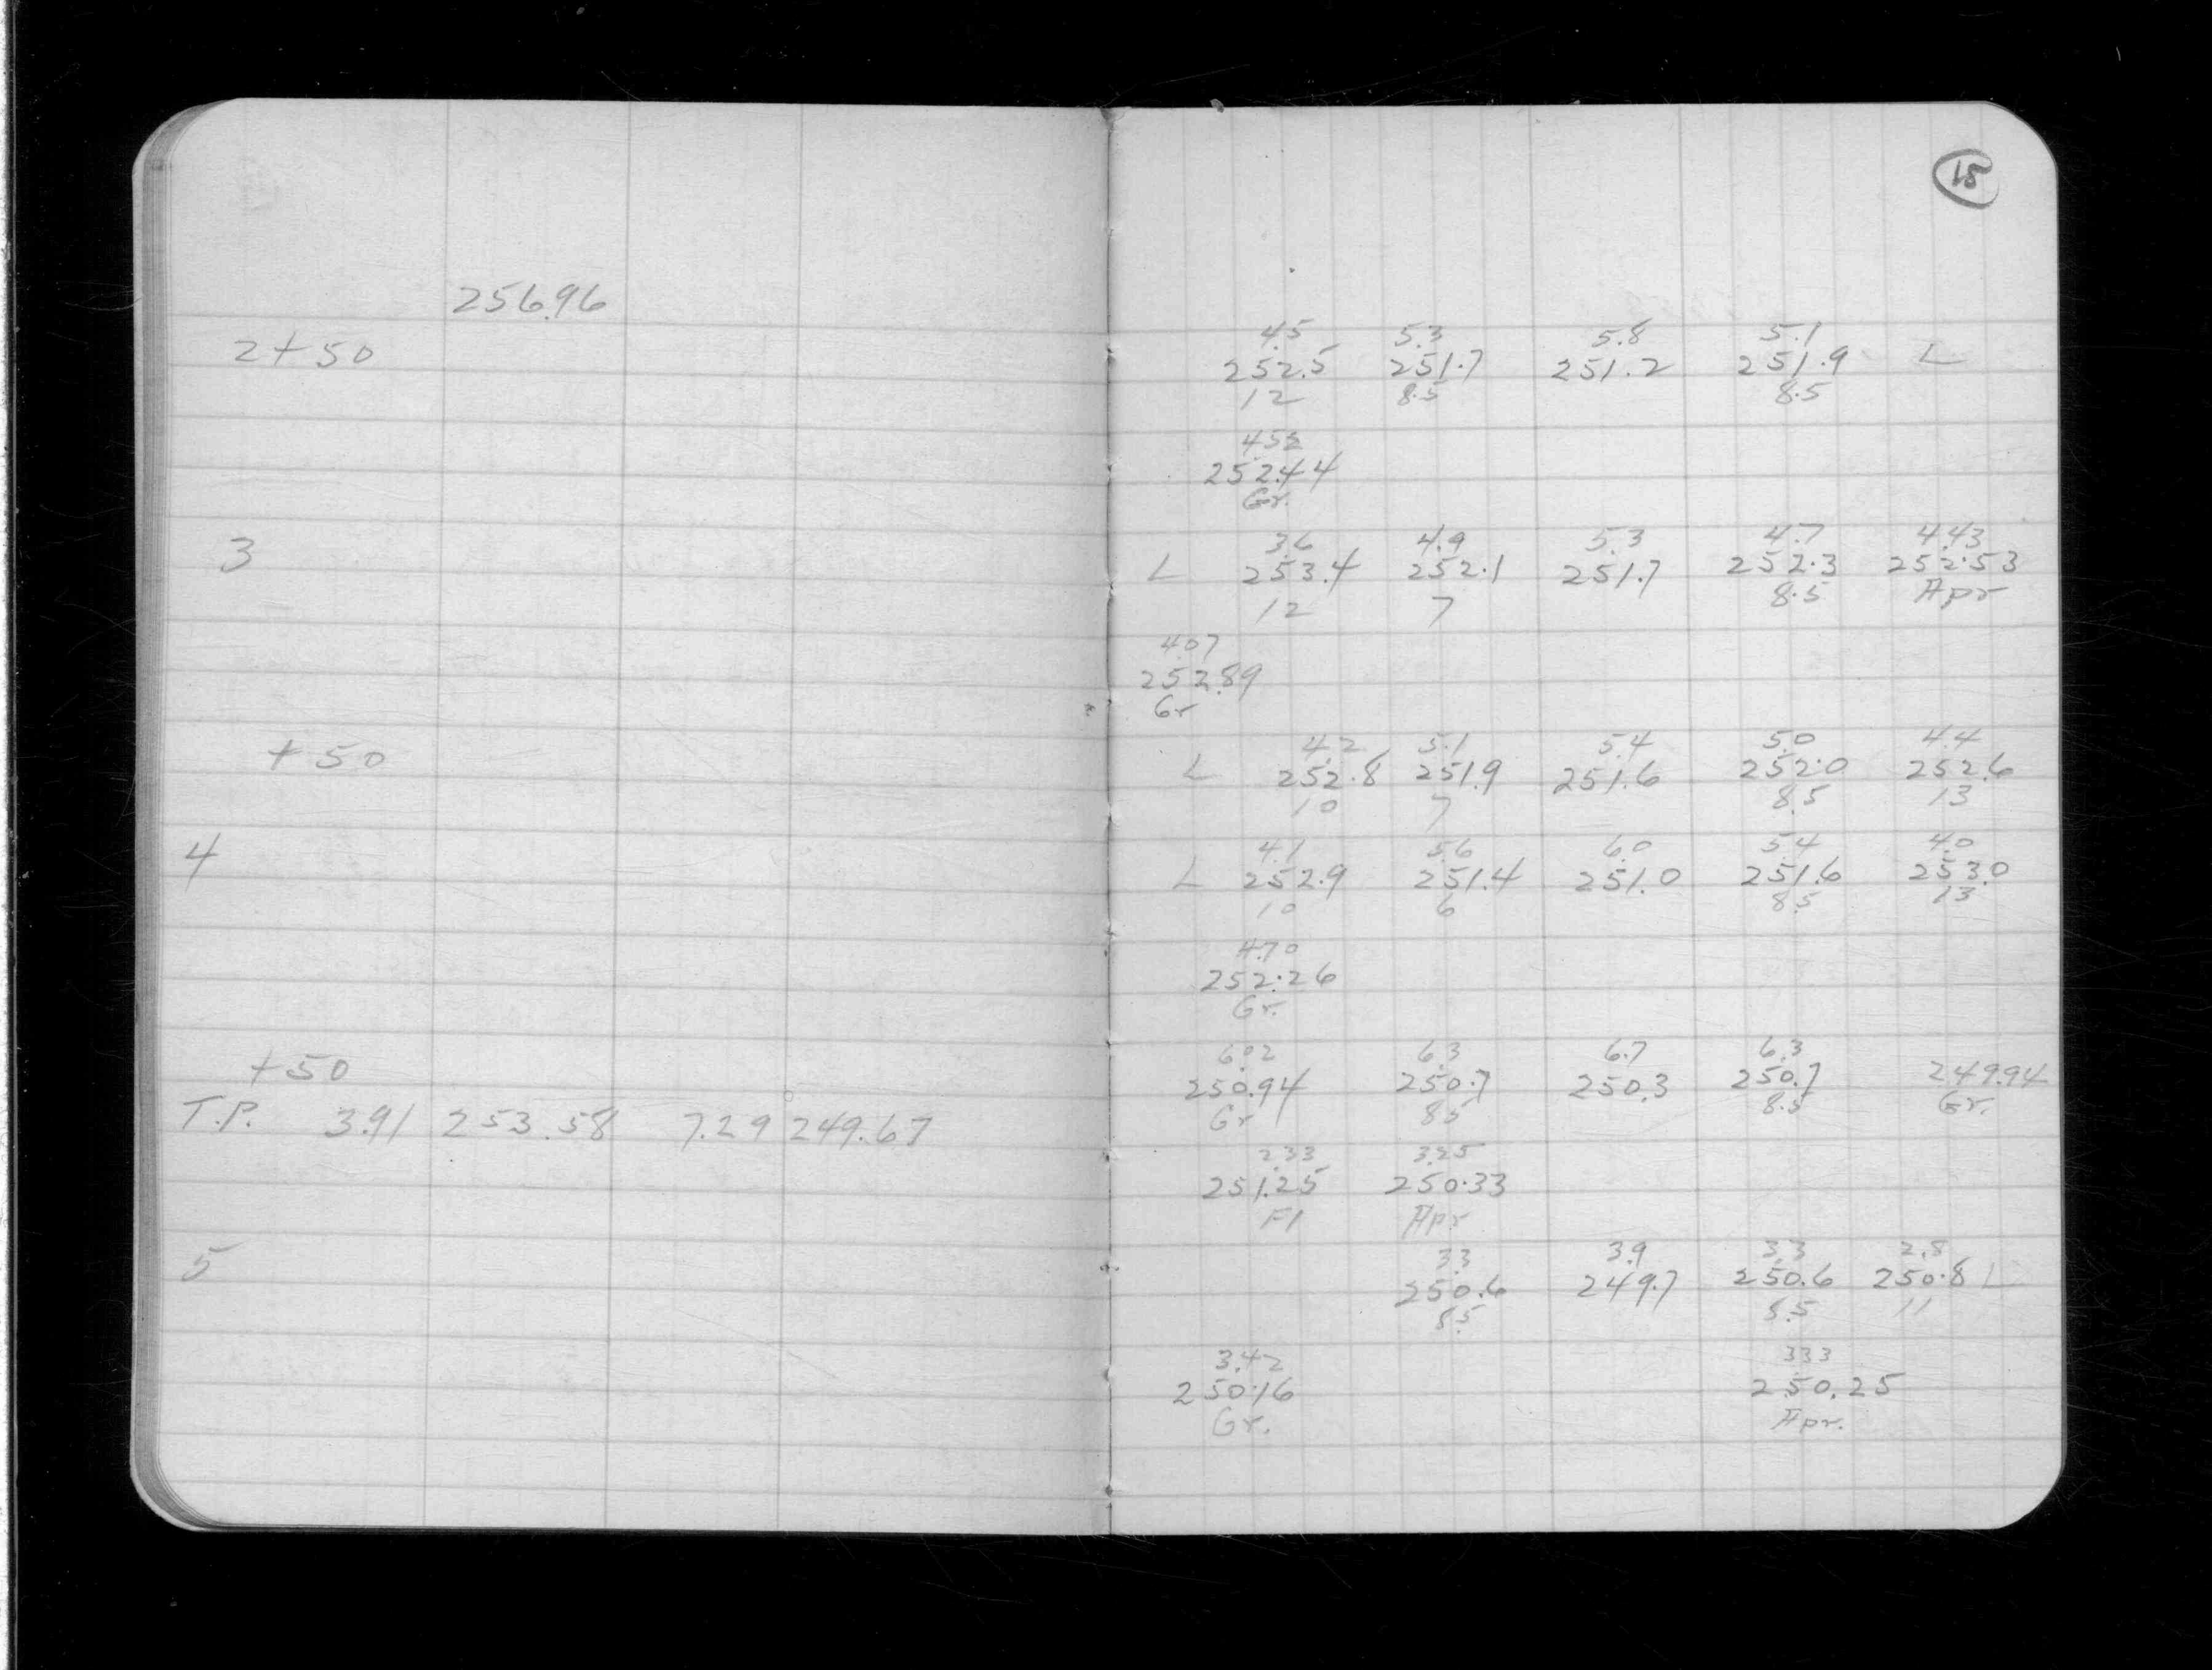 15
256.96
4.5 5.3 5.8 5.1
2+50 252.5 251.7 251.2 251.9 L
12 8.5 8.5
4.52
252.44
Gr.
3.6 4.9 5.3 4.7 4.43
3 L 253.4 252.1 251.7 252.3 252.53
12 7 8.5 Apr
4.07
252.89
Gr
4.2 5.1 5.4 5.0 4.4
+50 L 252.8 251.9 251.6 252.0 252.6
10 7 8.5 13
4.1 5.6 6.0 5.4 4.0
4 L 252.9 251.4 251.0 251.6 253.0
10 6 8.5 13
4.70
252.26
Gr.
6.02 6.3 6.7 6.3
+50 250.94 250.7 250.3 250.7 249.94
Gr 8.5 8.5 Gr.
T.P. 3.91 253.58 7.29 249.67
2.33 3.25
251.25 250.33
Fl Apr
3.3 3.9 3.3 2.8
5 250.6 249.7 250.6 250.8 L
8.5 8.5 11
3.42 333
250.16 250.25
Gr. Apr.